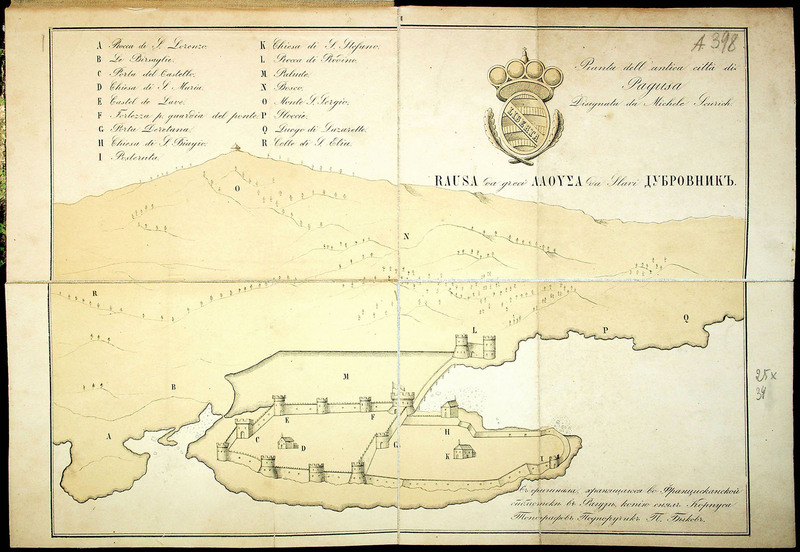 A 398
A Rocca di S. Lorenzo.
B Le Bersaglie.
C Porta del Castello.
D Chiesa di S. Maria.
E Castel de Lave.
F Fortezza p. guardia del ponte.
G Porta Loretana.
H Chiesa di S. Biagio.
I Posterula.
K Chiesa di S. Stefano.
L Rocca di
M Palude.
N Bosco.
O Monte S. Sergio.
P Ploccie.
Q Luogo di Lazaretto.
R Colle di S. Elia.
LIBERTA
Pianta dell' antica città di
Ragusa
Disegnata da Michele
RAUSA da greci ΛΑΟΥΣΑ da Slavi ДУБРОВНИКЪ.
O
N
R
L
P
Q
M
B
E
F
A
C
D
G
H
K
I
25 x
39
Съ оригинала, хранящагося во Францисканской
библіотекѣ въ Рагузѣ, копію снялъ Корпуса
Топографовъ Подпоручикъ П. Быковъ.